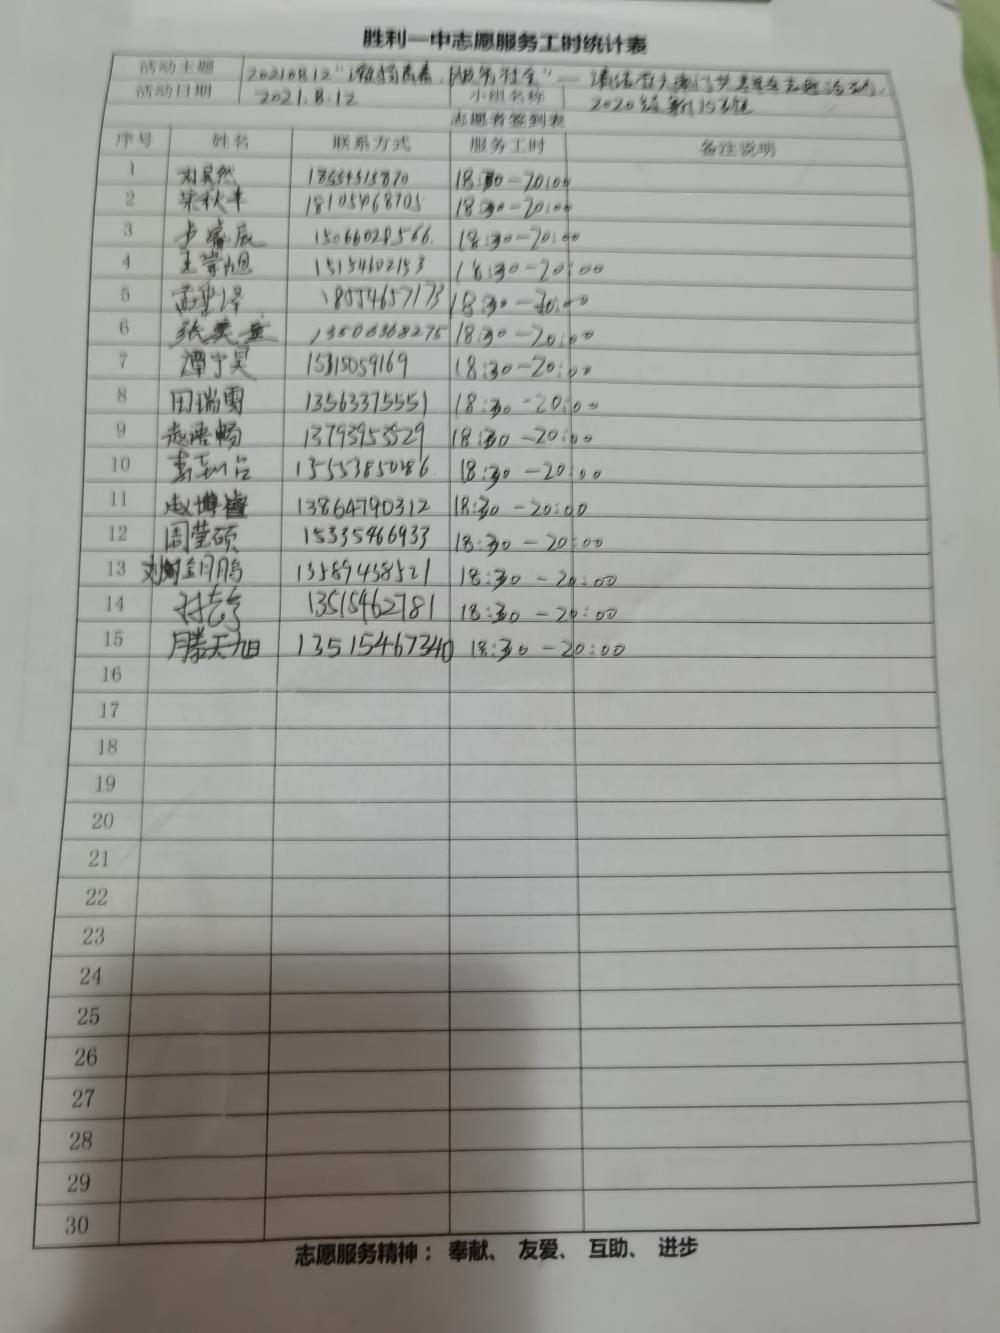 胜利一中志愿服务工时统计表
活动主题 20210812"
活动日期 2021.8.12 小组名称 2020级
志愿者签到表
序号 姓名 联系方式 服务工时 备注说明
1 刘昊然 18:30-20:00
2 荣秋丰 18105468705 18:30-20:00
3 卢睿辰 15066028566 18:30-20:00
4 王崇旭 15154602153 18:30-20:00
5 18554657173 18:30-20:00
6 张奕 13506368275 18:30-20:00
7 谭宁昊 15315059169 18:30-20:00
8 田瑞雪 13563375551 18:30-20:00
9 赵语畅 13793953529 18:30-20:00
10 18:30-20:00
11 赵博睿 13864790312 18:30-20:00
12 周莹硕 15335466933 18:30-20:00
13 13589458521 18:30-20:00
14 13515462781 18:30-20:00
15 滕天旭 13515467340 18:30-20:00
16
17
18
19
20
21
22
23
24
25
26
27
28
29
30
志愿服务精神：奉献、友爱、互助、进步